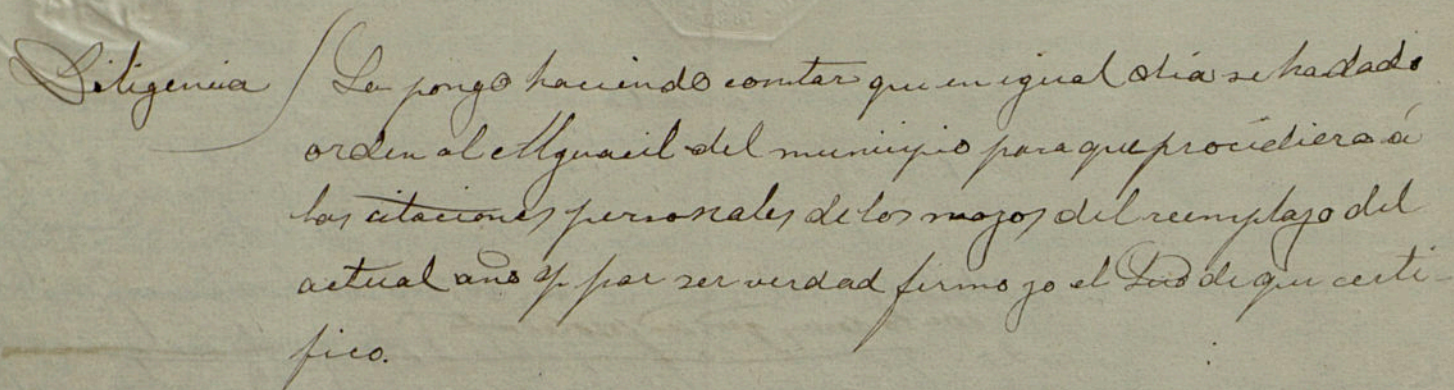 Diligencia / La pongo haciendo constar que en igual dia se ha dado
orden al Alguacil del municipio para que procediera á
las citaciones personales de los mozos del reemplazo del
actual año y por ser verdad firmo yo el Srio de que certi-
fico.